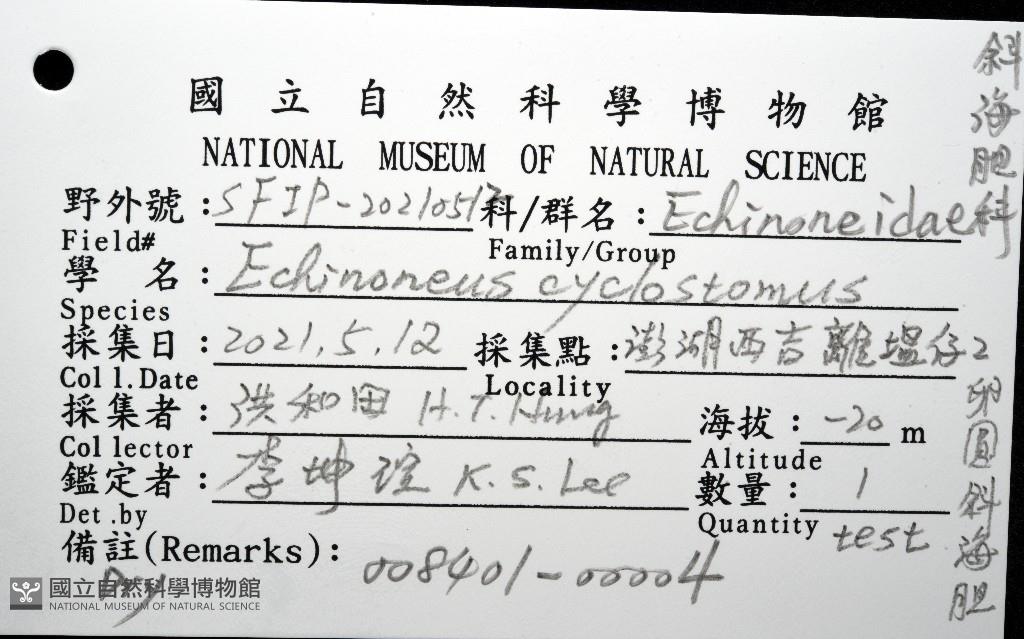 國立自然科學博物館
NATIONAL MUSEUM OF NATURAL SCIENCE
野外號：SFIP-20210512 科/群名：Echinoneidae 斜海胆科
Field# Family/Group
學 名：Echinoneus cyclostomus
Species
採集日：2021.5.12 採集點：澎湖西吉離塭仔2
Coll.Date Locality
採集者：洪和田 H.T.Hung 海拔：-20 m
Collector Altitude
鑑定者：李坤瑄 K.S.Lee 數量：1
Det.by Quantity test
備註(Remarks)：008401-00004
Dry
卵圓斜海胆
國立自然科學博物館
NATIONAL MUSEUM OF NATURAL SCIENCE